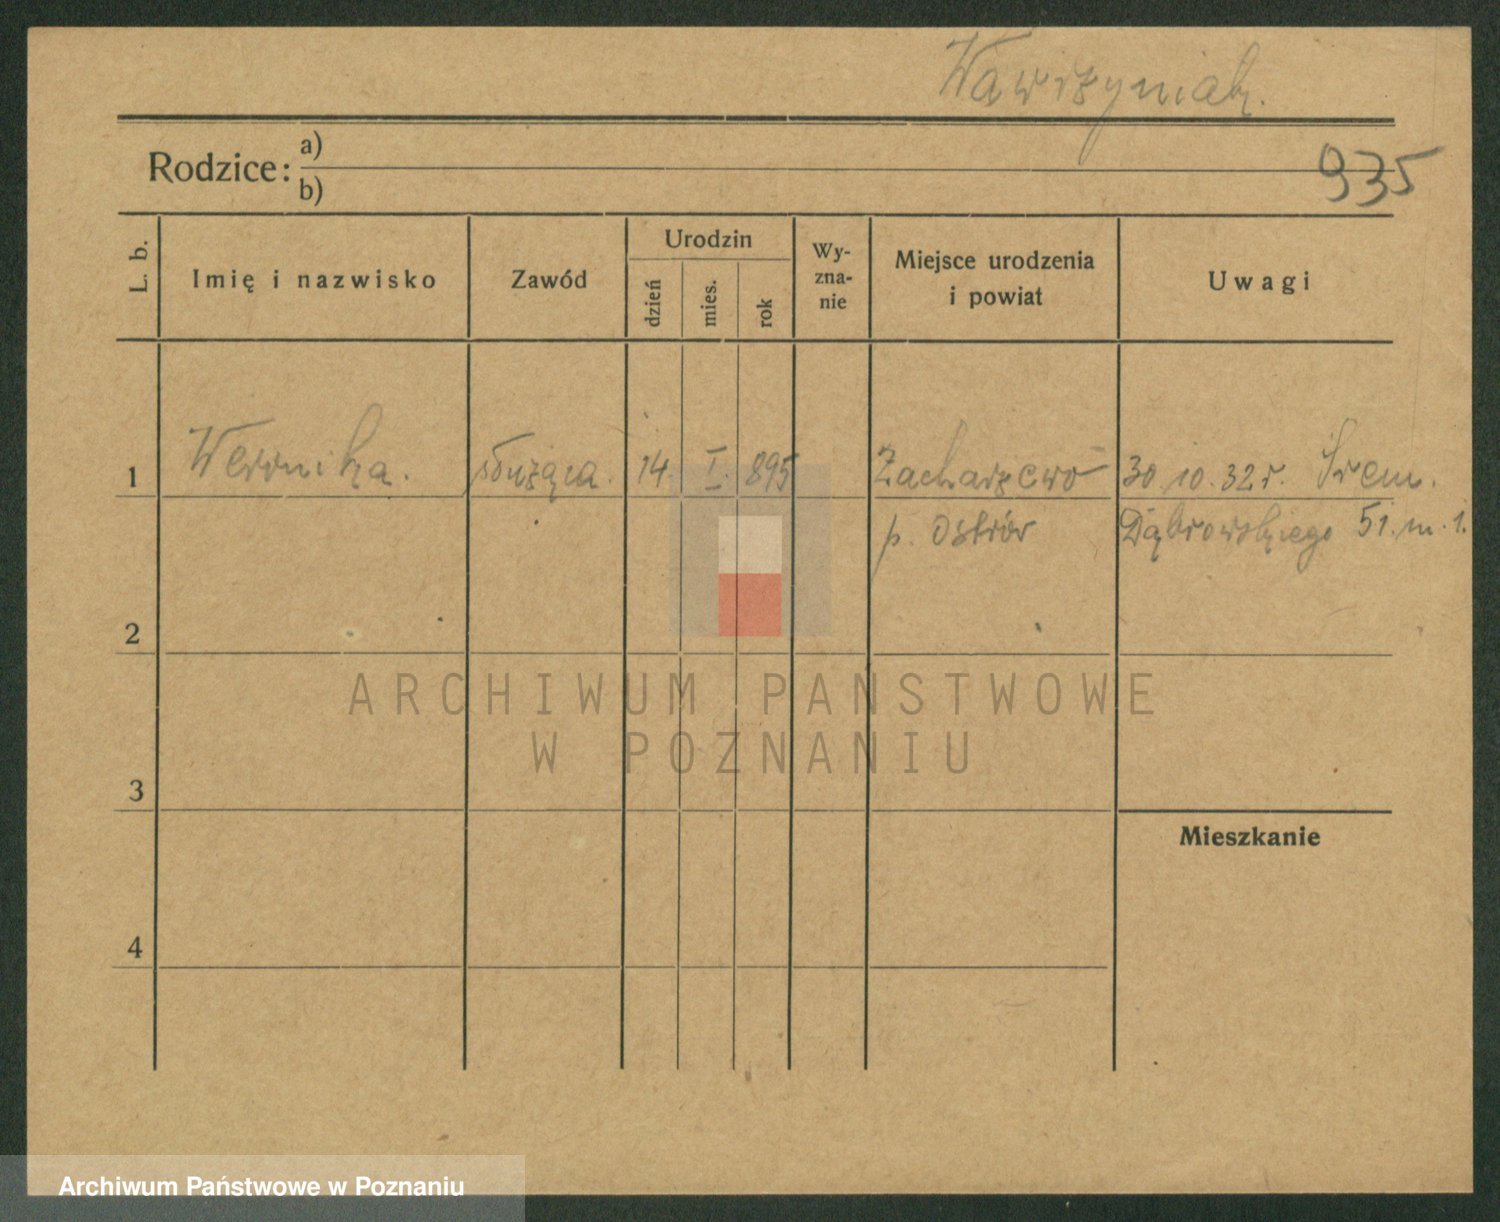 Wawrzyniak.
Rodzice: a)
b)
935
L. b.
Imię i nazwisko
Zawód
Urodzin
dzień
mies.
rok
Wy-
zna-
nie
Miejsce urodzenia
i powiat
Uwagi
1 Weronika. służąca. 14. I. 895 Zacharzewo 30.10.32 r. Śrem.
p. Ostrów Dąbrowskiego 51. m. 1.
2
ARCHIWUM PAŃSTWOWE
W POZNANIU
3
Mieszkanie
4
Archiwum Państwowe w Poznaniu